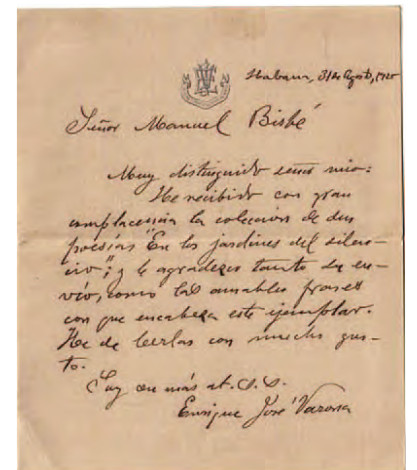 Habana, 31 de Agosto, 1925
Señor Manuel Bisbé
Muy distinguido señor mío:
He recibido con gran
complacencia la colección de sus
poesías "En los jardines del silen-
cio"; y le agradezco tanto su en-
vío, como las amables frases
con que encabeza este ejemplar.
He de leerlas con mucho gus-
to.
Soy su más at. s.s.
Enrique José Varona